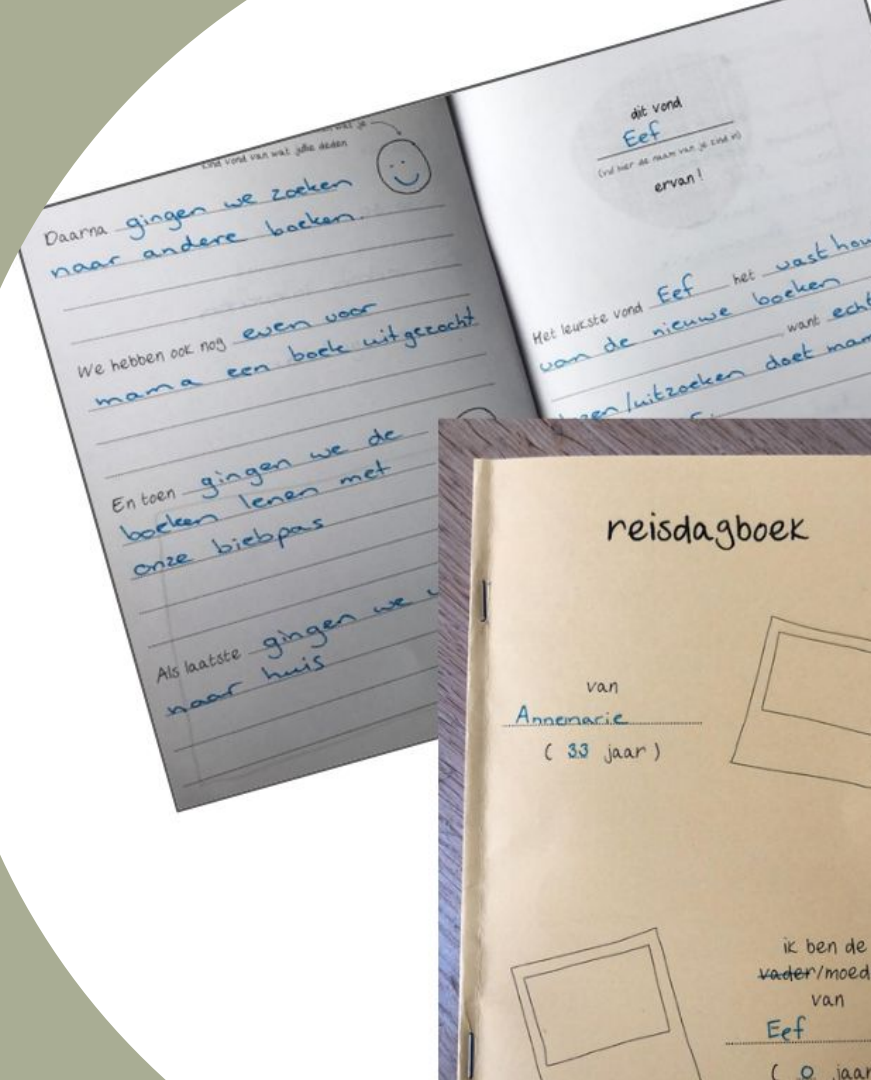 kind vond van wat jullie deden
Daarna gingen we zoeken
naar andere boeken.
We hebben ook nog even voor
mama een boek uitgezocht
En toen gingen we de
boeken lenen met
onze biebpas
Als laatste gingen we
naar huis
dit vond
Eef
(vul hier de naam van je kind in)
ervan!
Het leukste vond Eef het vasthou
van de nieuwe boeken
want echt
/uitzoeken doet mam
reisdagboek
van
Annemarie
( 33 jaar )
ik ben de
vader/moed
van
Eef
( 0 jaar